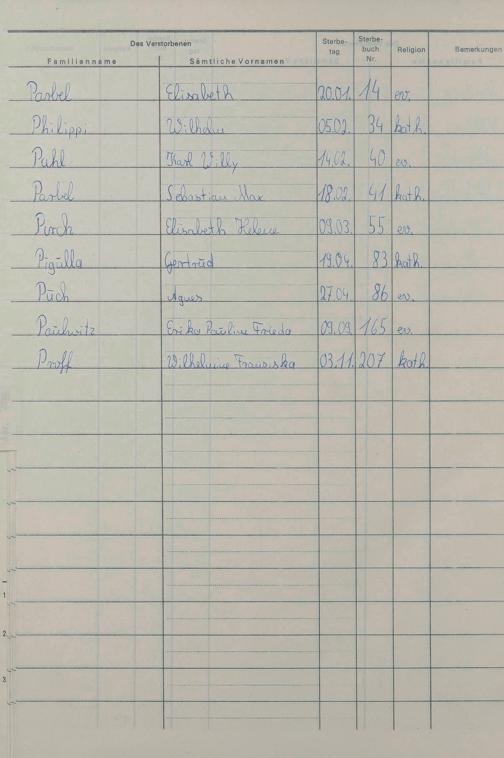 Des Verstorbenen Sterbe- Sterbe-
Familienname Sämtliche Vornamen tag buch Religion Bemerkungen
Nr.
Parbel Elisabeth 20.01. 14 ev.
Philippi Wilhelm 05.02. 34 kath.
Puhl Karl Willy 14.02. 40 ev.
Parbel Sebastian Max 18.02. 41 kath.
Pirch Elisabeth Helene 09.03. 55 ev.
Pigulla Gertrud 19.04. 83 kath.
Puch Agnes 27.04. 86 ev.
Pauhwitz Erika Pauline Frieda 09.09. 165 ev.
Proff Wilhelmine Franziska 03.11. 207 kath.
1
2
3